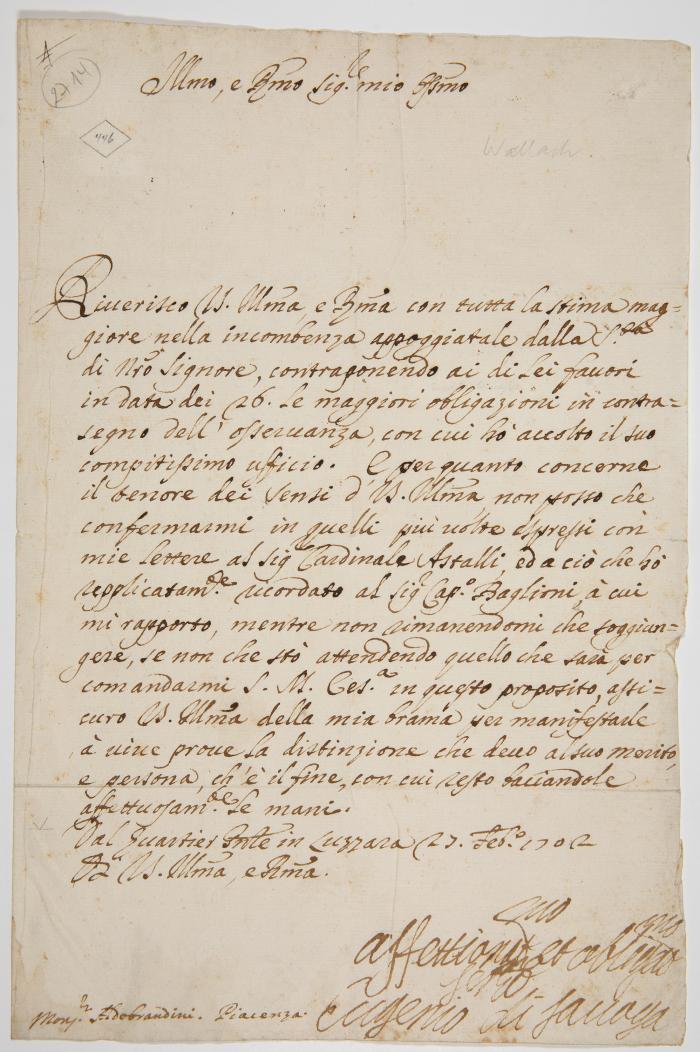 #
2714
446
Illmo, e Rmo Sigre. mio Ossmo
Wallach.
Riuerisco V.S. Illma, e Rma con tutta la stima mag=
giore nella incombenza appoggiatale dalla S.tà
di Nro Signore, contraponendo ai di Lei fauori
in data dei 26. le maggiori obligazioni in contra=
segno dell' osseruanza, con cui hò accolto il suo
compitissimo ufficio. E per quanto concerne
il tenore dei sensi d' V.S. Illma non posso che
confermarmi in quelli più uolte espressi con
mie lettere al Sig Cardinale Astalli, ed a ciò che hò
replicatam.te ricordato al Sigr Cap.o Baglioni, à cui
mi rapporto, mentre non rimanendomi che soggiun=
gere, se non che stò attendendo quello che sarà per
comandarmi S. M. Ces.a in questo proposito, assi=
curo V.S. Illma della mia brama per manifestarle
à uiue proue la distinzione che deuo al suo merito,
e persona, ch' è il fine, con cui resto bacciandole
affettuosam.te le mani.
Dal Quartier Gnle in Luzzara 27. Feb.o 1702
D V.S. Illma, e Rma.
affettionmo et obligmo
seruo
Eugenio di Sauoya
Monsr. Aldobrandini. Piacenza.